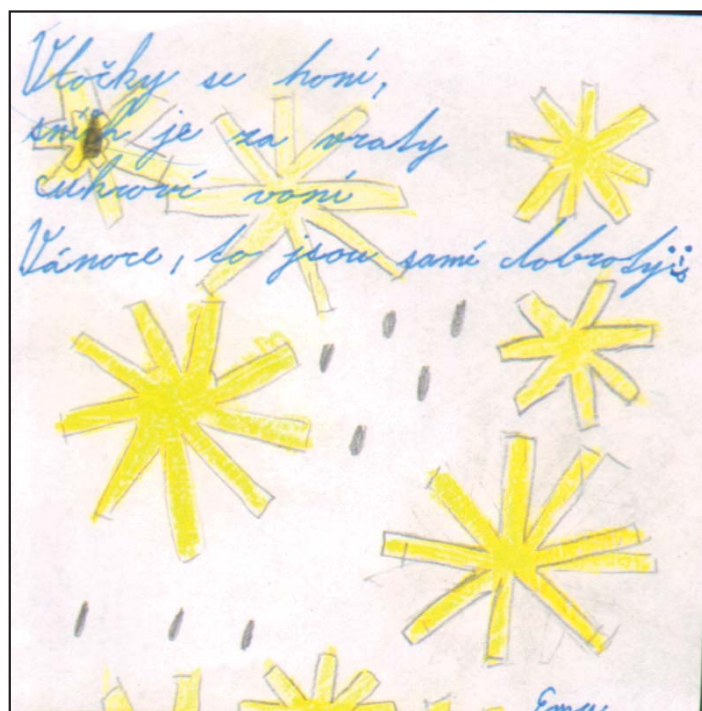 Vločky se honí,
sníh je za vraty
cukroví voní
Vánoce, to jsou samé dobroty
Ema